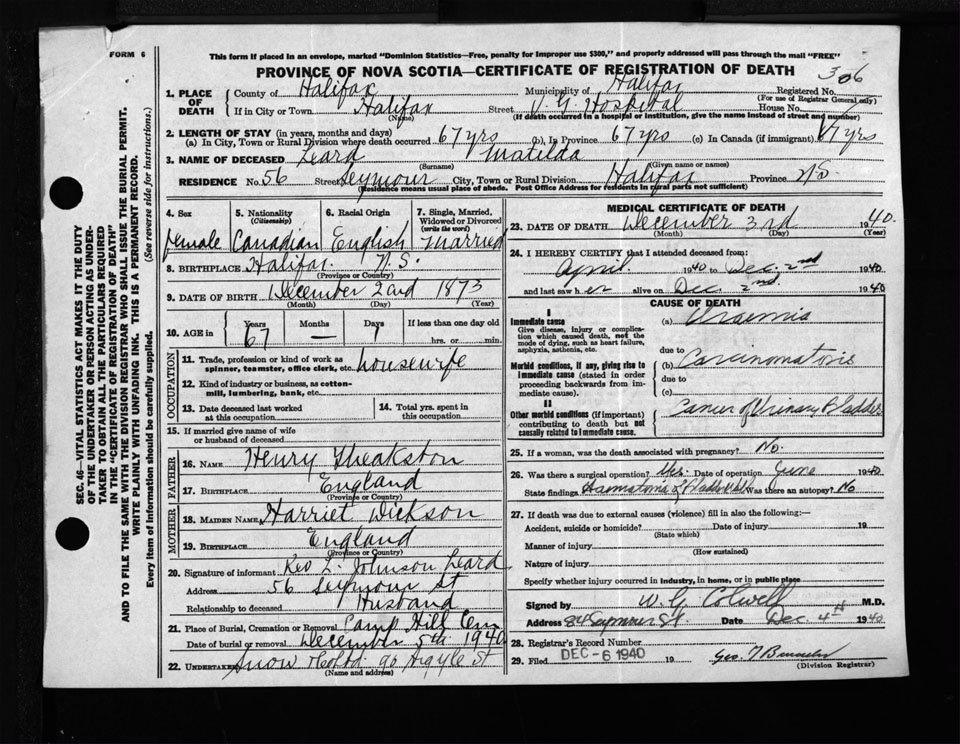 FORM 6
This form if placed in an envelope, marked "Dominion Statistics—Free, penalty for improper use $300," and properly addressed will pass through the mail "FREE"
PROVINCE OF NOVA SCOTIA—CERTIFICATE OF REGISTRATION OF DEATH
306
1. PLACE OF DEATH County of Halifax Municipality of Halifax Registered No.
(For use of Registrar General only)
If in City or Town Halifax Street V. G. Hospital House No.
(Name) (If death occurred in a hospital or institution, give the name instead of street and number)
2. LENGTH OF STAY (in years, months and days)
(a) In City, Town or Rural Division where death occurred 67 yrs (b) In Province 67 yrs (c) In Canada (if immigrant) 67 yrs
3. NAME OF DECEASED Leard Matilda
(Surname) (Given name or names)
RESIDENCE No. 56 Street Seymour City, Town or Rural Division Halifax Province N.S.
(Residence means usual place of abode. Post Office Address for residents in rural parts not sufficient)
4. Sex 5. Nationality (Citizenship) 6. Racial Origin 7. Single, Married, Widowed or Divorced (write the word)
female Canadian English Married
8. BIRTHPLACE Halifax N.S.
(Province or Country)
9. DATE OF BIRTH December 22nd 1873
(Month) (Day) (Year)
10. AGE in Years Months Days If less than one day
67 — 7 hrs. or min.
OCCUPATION
11. Trade, profession or kind of work as spinner, teamster, office clerk, etc. housewife
12. Kind of industry or business, as cotton-mill, lumbering, bank, etc.
13. Date deceased last worked at this occupation
14. Total yrs. spent in this occupation
15. If married give name of wife or husband of deceased
FATHER
16. NAME Henry Theakston
17. BIRTHPLACE England
(Province or Country)
MOTHER
18. MAIDEN NAME Harriet Dickson
19. BIRTHPLACE England
(Province or Country)
20. Signature of informant Rev L. Johnson Leard
Address 56 Seymour St
Relationship to deceased Husband
21. Place of Burial, Cremation or Removal Camp Hill Cem
Date of burial or removal December 5th 1940
22. UNDERTAKER Snow & Co Ltd 90 Argyle St
(Name and address)
MEDICAL CERTIFICATE OF DEATH
23. DATE OF DEATH December 3rd 1940.
(Month) (Day) (Year)
24. I HEREBY CERTIFY that I attended deceased from:
April 1940 to Dec. 2nd 1940
and last saw her alive on Dec. 2nd. 1940
CAUSE OF DEATH
I
Immediate cause (a) Uraemia
Give disease, injury or complication which caused death, not the mode of dying, such as heart failure, asphyxia, asthenia, etc.
due to
Morbid conditions, if any, giving rise to immediate cause (stated in order proceeding backwards from immediate cause) (b) Carcinomatosis
due to
(c)
II
Other morbid conditions (if important) contributing to death but not causally related to immediate cause. Cancer of Urinary Bladder
25. If a woman, was the death associated with pregnancy? No.
26. Was there a surgical operation? Yes. Date of operation June 1940
State findings Was there an autopsy? No
27. If death was due to external causes (violence) fill in also the following:—
Accident, suicide or homicide? Date of injury 19
(State which)
Manner of injury
(How sustained)
Nature of injury
Specify whether injury occurred in industry, in home, or in public place
Signed by W. G. Colwell M.D.
Address 84 Seymour St. Date Dec 4th 1940
28. Registrar's Record Number
29. Filed DEC -6 1940 19
(Division Registrar)
SEC. 46—VITAL STATISTICS ACT MAKES IT THE DUTY
OF THE UNDERTAKER OR PERSON ACTING AS UNDER-
TAKER TO OBTAIN ALL THE PARTICULARS REQUIRED
IN THE "CERTIFICATE OF REGISTRATION OF DEATH"
AND TO FILE THE SAME WITH THE DIVISION REGISTRAR WHO SHALL ISSUE THE BURIAL PERMIT.
WRITE PLAINLY WITH UNFADING INK. THIS IS A PERMANENT RECORD.
Every item of information should be carefully supplied. (See reverse side for instructions.)